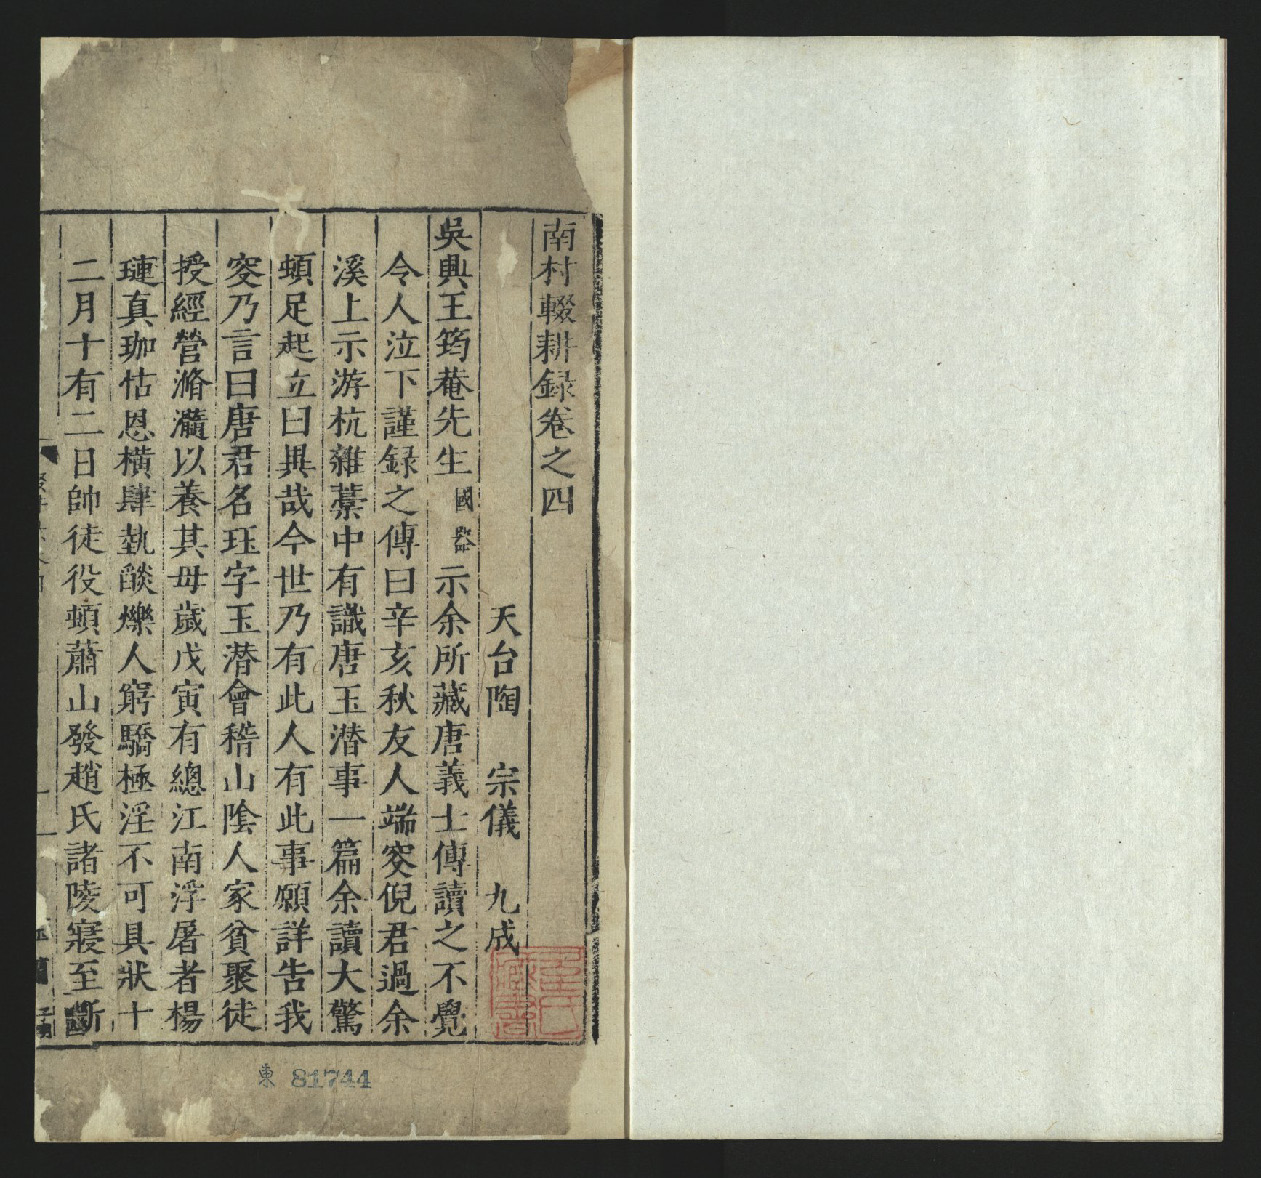 南村輟耕録卷之四
天台陶　宗儀　九成
吳興王筠菴先生國器示余所藏唐義士傳讀之不覺
令人泣下謹録之傳曰辛亥秋友人端窔倪君過余
溪上示游杭雜藁中有識唐玉潛事一篇余讀大驚
頓足起立曰異哉今世乃有此人有此事願詳告我
窔乃言曰唐君名珏字玉潛會稽山陰人家貧聚徒
授經營滫瀡以養其母歲戊寅有總江南浮屠者楊
璉真珈怙恩橫肆埶燄爍人窮驕極淫不可具狀十
二月十有二日帥徒役頓蕭山發趙氏諸陵寢至斷
東 81744